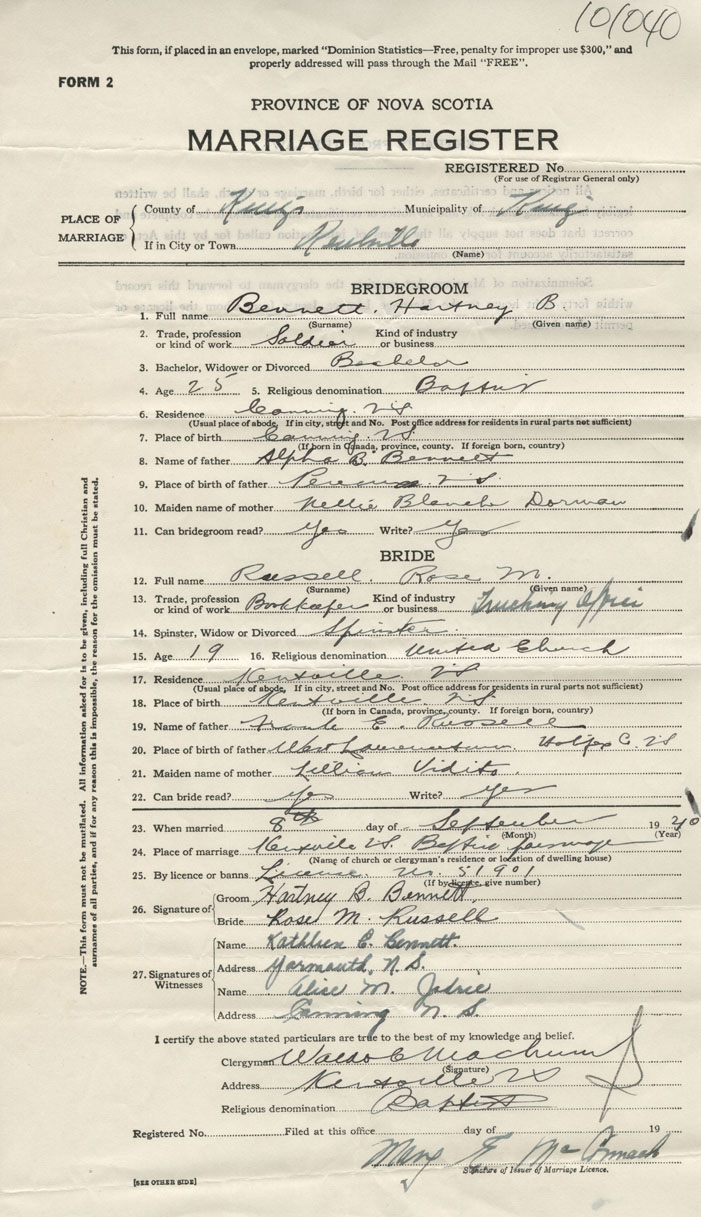 101040
This form, if placed in an envelope, marked "Dominion Statistics—Free, penalty for improper use $300," and
properly addressed will pass through the Mail "FREE".
FORM 2
PROVINCE OF NOVA SCOTIA
MARRIAGE REGISTER
REGISTERED No.
(For use of Registrar General only)
PLACE OF MARRIAGE
County of Kings Municipality of Kings
If in City or Town Kentville
(Name)
BRIDEGROOM
1. Full name Bennett, Hartney B.
(Surname) (Given name)
2. Trade, profession or kind of work Soldier Kind of industry or business
3. Bachelor, Widower or Divorced Bachelor
4. Age 25 5. Religious denomination Baptist
6. Residence Canning. N.S.
(Usual place of abode, If in city, street and No. Post office address for residents in rural parts not sufficient)
7. Place of birth Canning. N.S.
(If born in Canada, province, county. If foreign born, country)
8. Name of father Alpha B. Bennett
9. Place of birth of father N.S.
10. Maiden name of mother Nellie Blanch Dorman
11. Can bridegroom read? Yes Write? Yes
BRIDE
12. Full name Russell. Rose M.
(Surname) (Given name)
13. Trade, profession or kind of work Bookkeeper Kind of industry or business Trucking Office
14. Spinster, Widow or Divorced Spinster.
15. Age 19 16. Religious denomination United Church
17. Residence Kentville N.S.
(Usual place of abode, If in city, street and No. Post office address for residents in rural parts not sufficient)
18. Place of birth Kentville N.S.
(If born in Canada, province, county. If foreign born, country)
19. Name of father Frank E. Russell
20. Place of birth of father West Lawrencetown Halifax C. N.S
21. Maiden name of mother Lillian Vidito.
22. Can bride read? yes Write? yes
23. When married 8th day of September 1940
(Month) (Year)
24. Place of marriage Kentville N.S. Baptist parsonage
(Name of church or clergyman's residence or location of dwelling house)
25. By licence or banns License no. 51901
(If by licence, give number)
26. Signature of
Groom Hartney B. Bennett,
Bride Rose M. Russell
27. Signatures of Witnesses
Name Kathleen E. Bennett.
Address Yarmouth, N.S.
Name Alise M. Jodrie
Address Canning N.S.
I certify the above stated particulars are true to the best of my knowledge and belief.
Clergyman Waldo C Machum
(Signature)
Address Kentville N S
Religious denomination Baptist
Registered No. Filed at this office day of 19
Mary F. McCormack
Signature of Issuer of Marriage Licence.
[SEE OTHER SIDE]
NOTE.—This form must not be mutilated. All information asked for is to be given, including full Christian and
surnames of all parties, and if for any reason this is impossible, the reason for the omission must be stated.